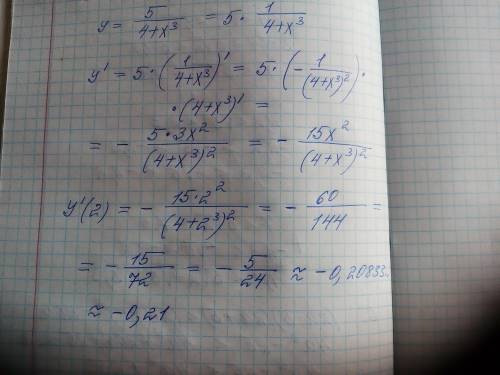 y = 5/(4+x³) = 5 · 1/(4+x³)
y' = 5·(1/(4+x³))' = 5·(-1/(4+x³)²)·
·(4+x³)' =
= - 5·3x²/(4+x³)² = - 15x²/(4+x³)²
y'(2) = - 15·2²/(4+2³)² = - 60/144 =
= - 15/72 = - 5/24 ≈ -0,20833..
≈ -0,21